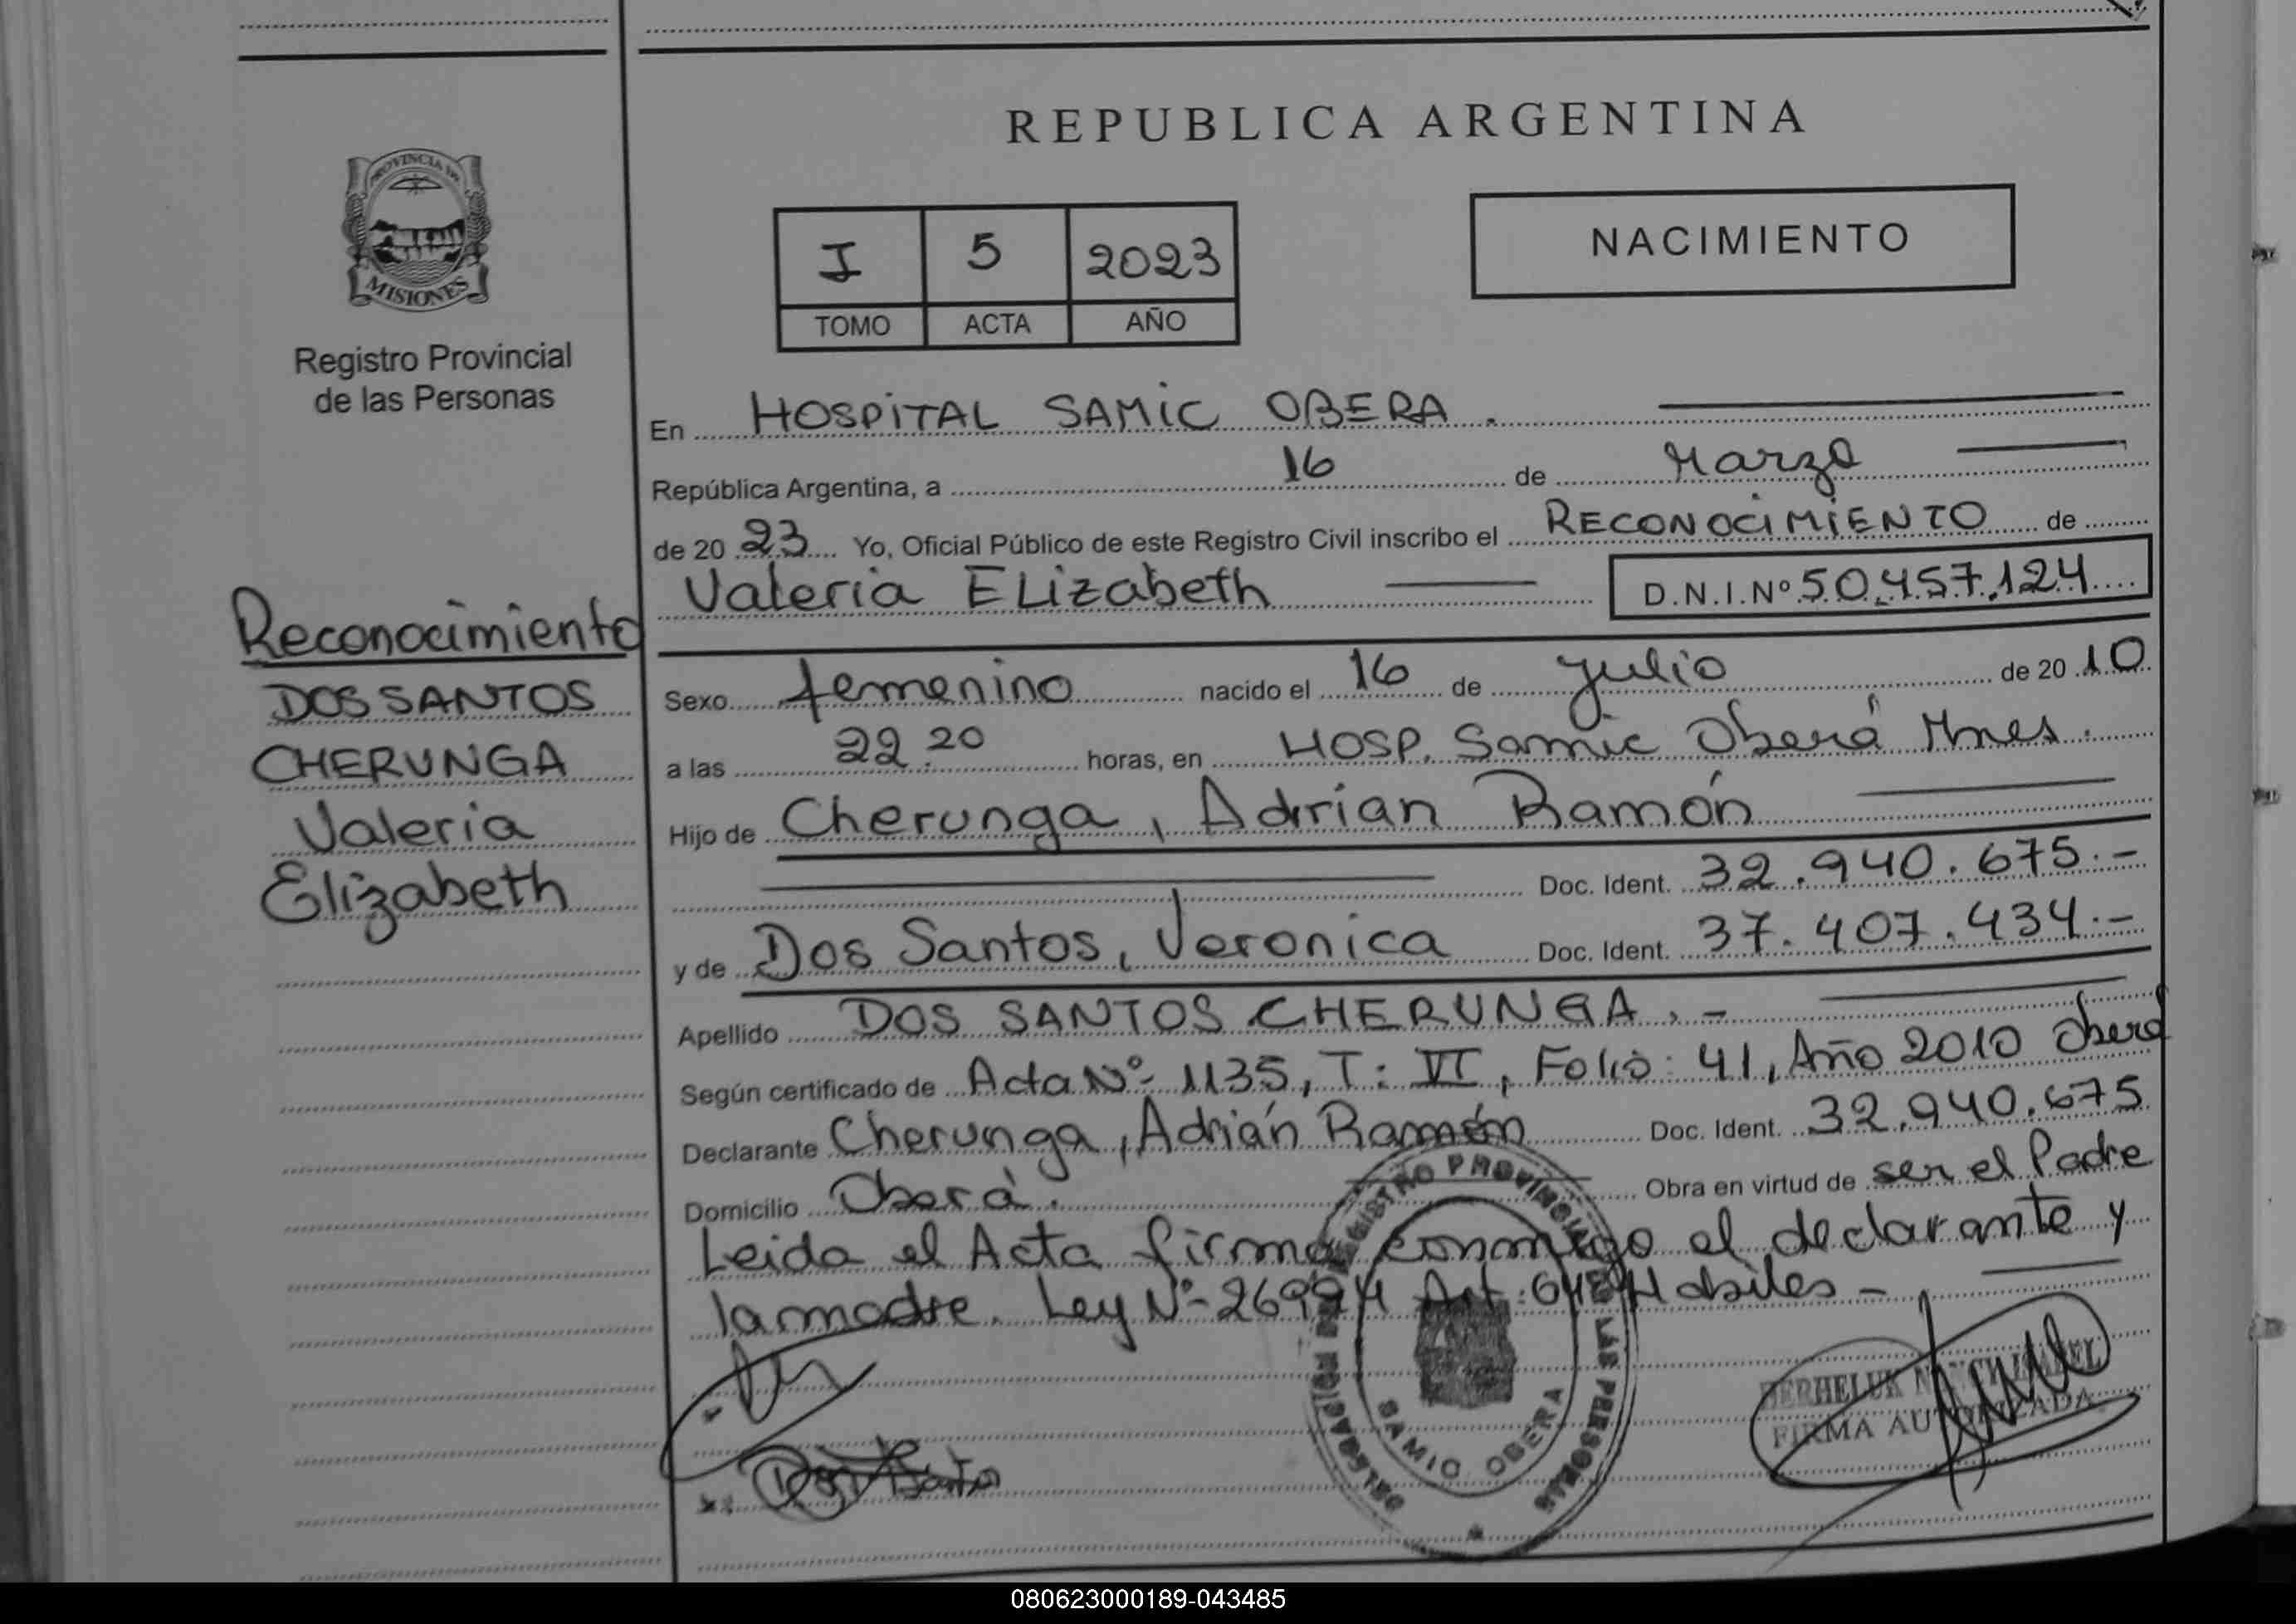 REPUBLICA ARGENTINA
PROVINCIA DE
MISIONES
Registro Provincial
de las Personas
I 5 2023
TOMO ACTA AÑO
NACIMIENTO
En HOSPITAL SAMIC OBERA.
República Argentina, a 16 de Marzo
de 20 23 Yo, Oficial Público de este Registro Civil inscribo el RECONOCIMIENTO de
Valeria ELizabeth D.N.I.Nº 50.457.124
Reconocimiento
DOS SANTOS
CHERUNGA
Valeria
Elizabeth
Sexo femenino nacido el 16 de Julio de 20 10
a las 22.20 horas, en HOSP. Samic Oberá Mnes.
Hijo de Cherunga, Adrian Ramón
Doc. Ident. 32.940.675.-
y de Dos Santos, Veronica Doc. Ident. 37.407.434.-
Apellido DOS SANTOS CHERUNGA.-
Según certificado de Acta Nº 1135, T: VI, Folio: 41, Año 2010 Oberá
Declarante Cherunga, Adrián Ramón Doc. Ident. 32.940.675
Domicilio Oberá. Obra en virtud de ser el Padre
Leida el Acta firma conmigo el declarante y
la madre. Ley Nº 26994 Art: 64 Habiles -
REGISTRO PROVINCIAL DE LAS PERSONAS
SAMIC OBERA
Dos Santos
FIRMA AUTORIZADA
080623000189-043485